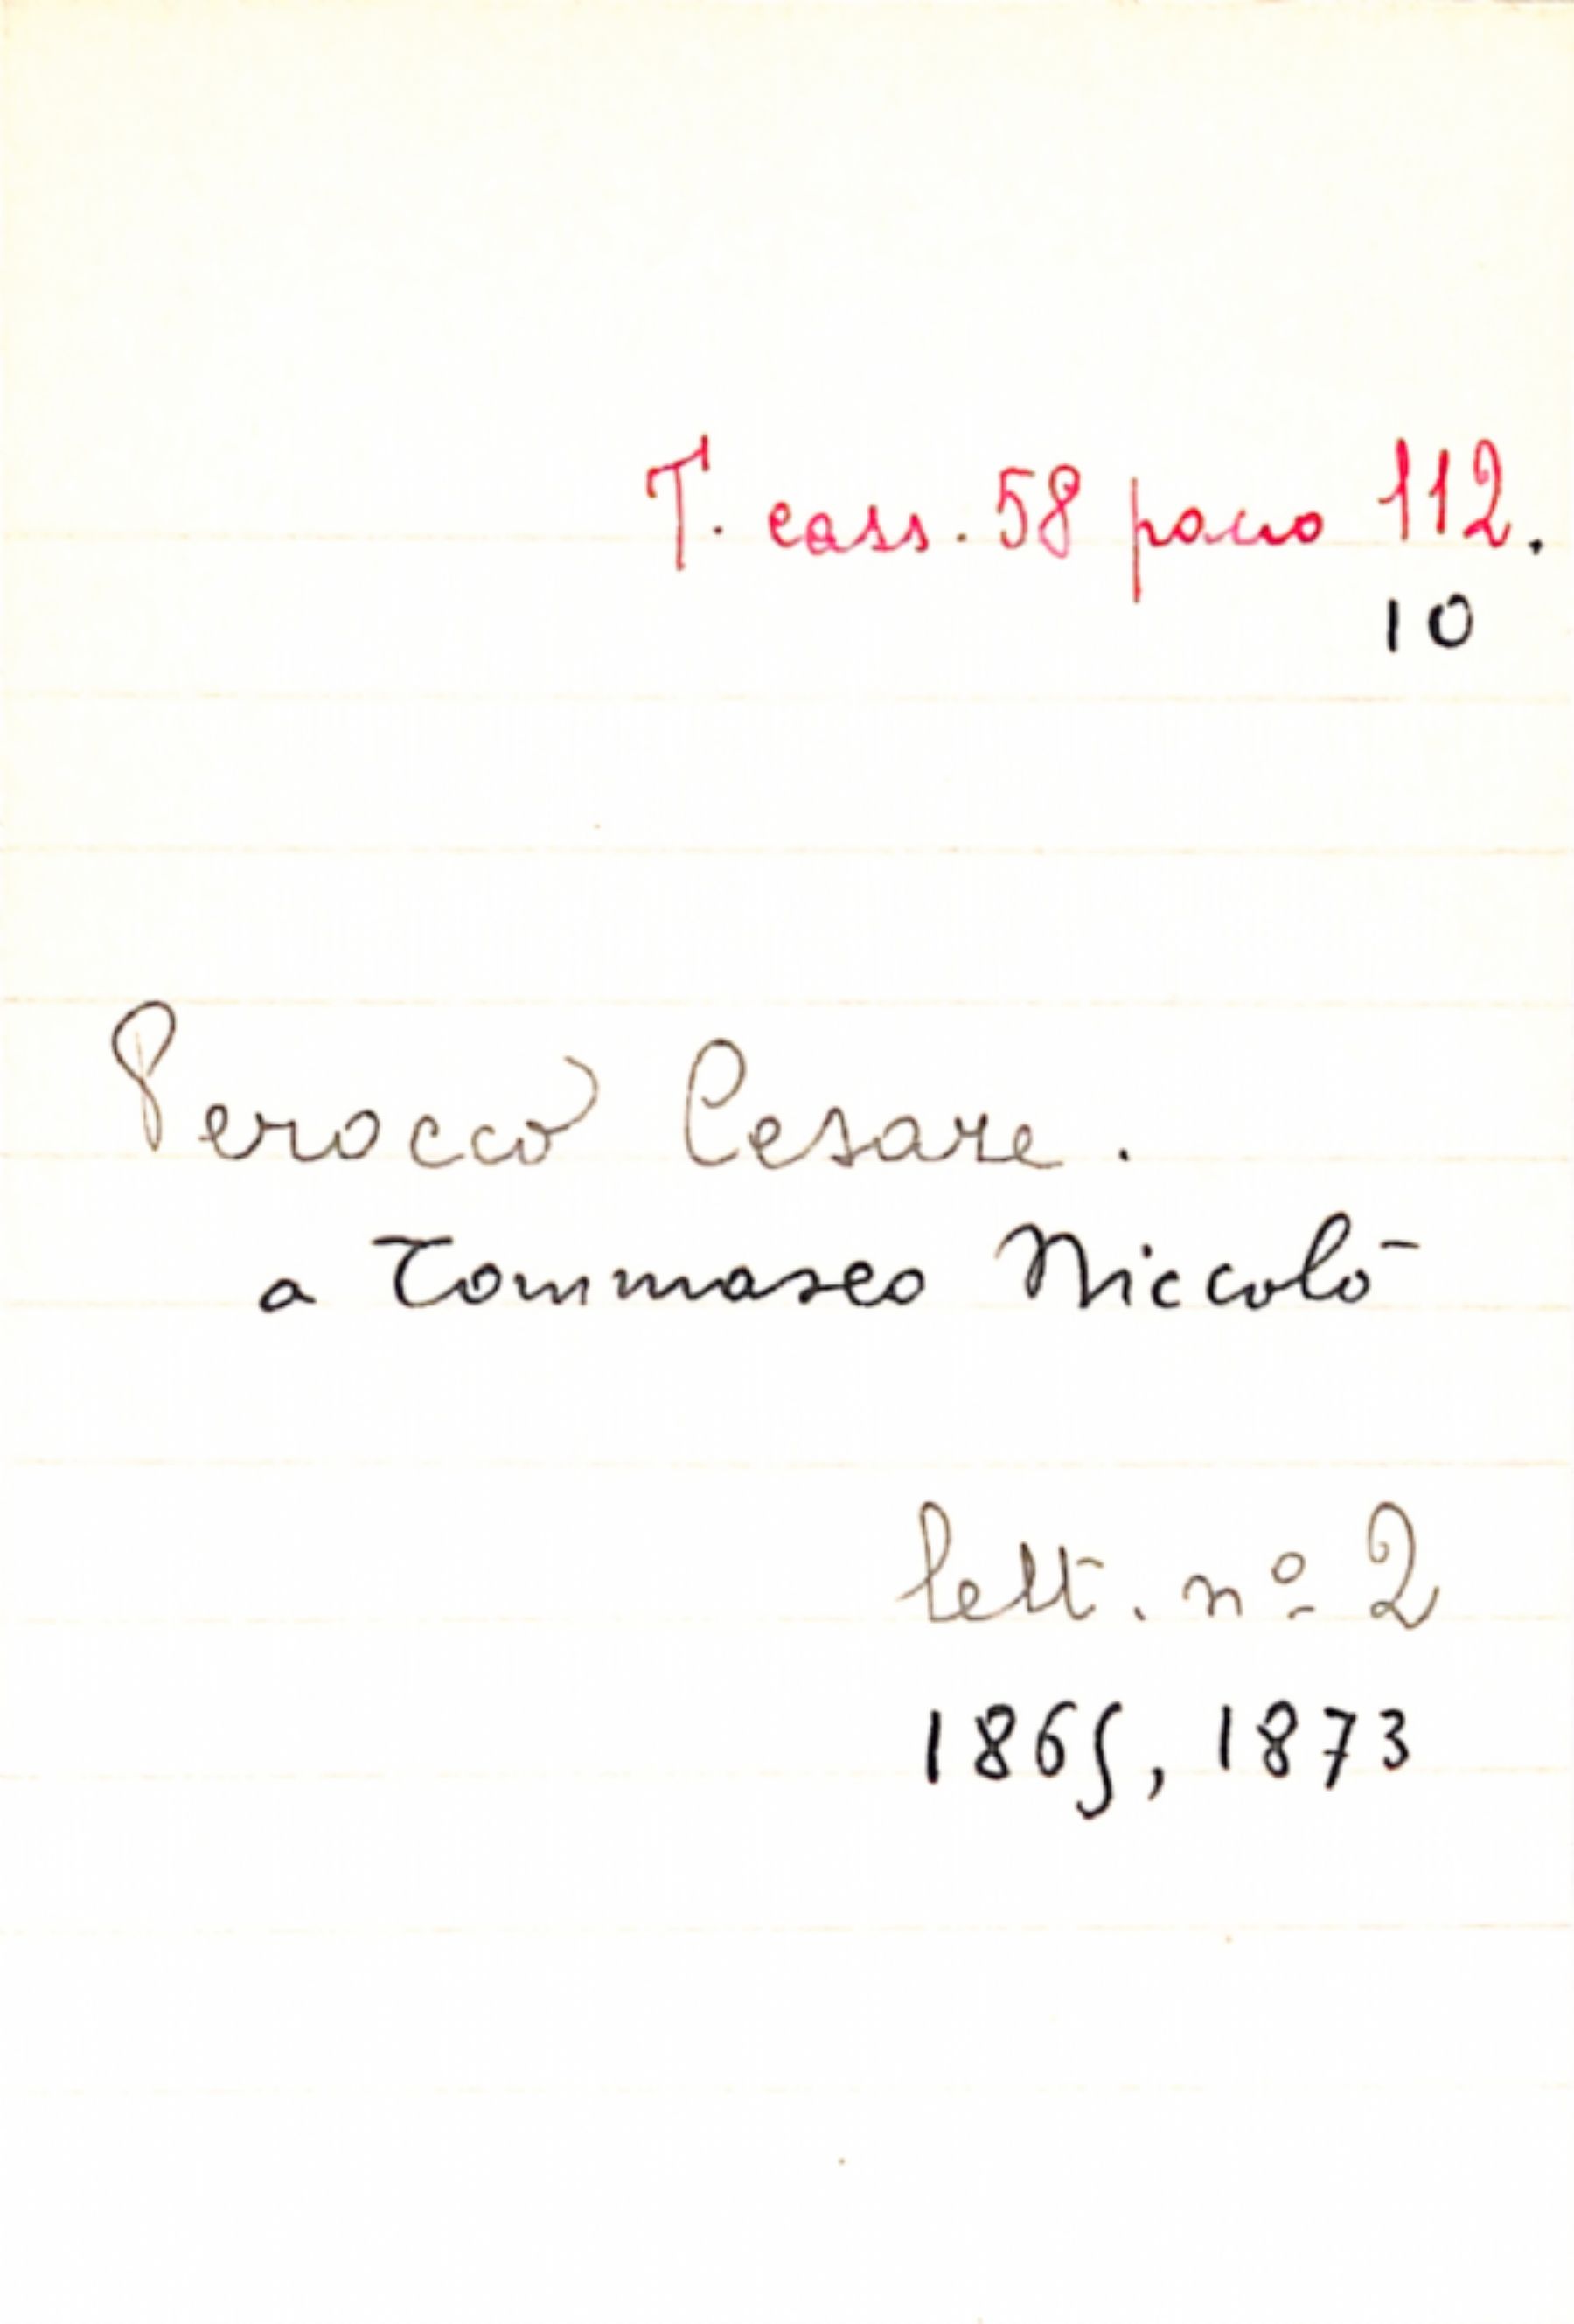 T. cass. 58 pacco 112.
10
Perocco Cesare.
a Tommaseo Niccolò
lett. nº 2
1865, 1873